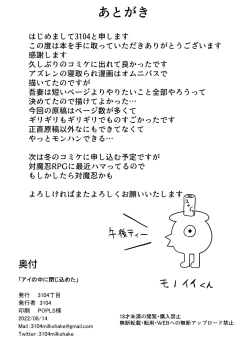 あとがき
はじめまして3104と申します
この度は本を手に取っていただきありがとうございます
感謝します
久しぶりのコミケに出れて良かったです
アズレンの寝取られ漫画はオムニバスで
描いてましてが
吾妻は短いページよりやりたいこと全部やろうって
決めてたので描けてよかった…
今回の原稿はページ数が多くて
ギリギリもギリギリでものすごかったです
正直原稿以外なにもできてなくて
やっとモンハンできる…
次は冬のコミケに申し込む予定ですが
対魔忍RPGに最近ハマってるので
もしかしたら対魔忍かも
よろしければまたよろしくお願いいたします
午後ティー
モノイイくん
奥付
「アイの中に閉じ込めた」
発行 3104丁目
発行者 3104
印刷 POPLS様
2022/08/14
Mail:3104milkshake@gmail.com
Twitter:3104milkshake
18才未満の閲覧・購入禁止
無断転載・転用・WEBへの無断アップロード禁止